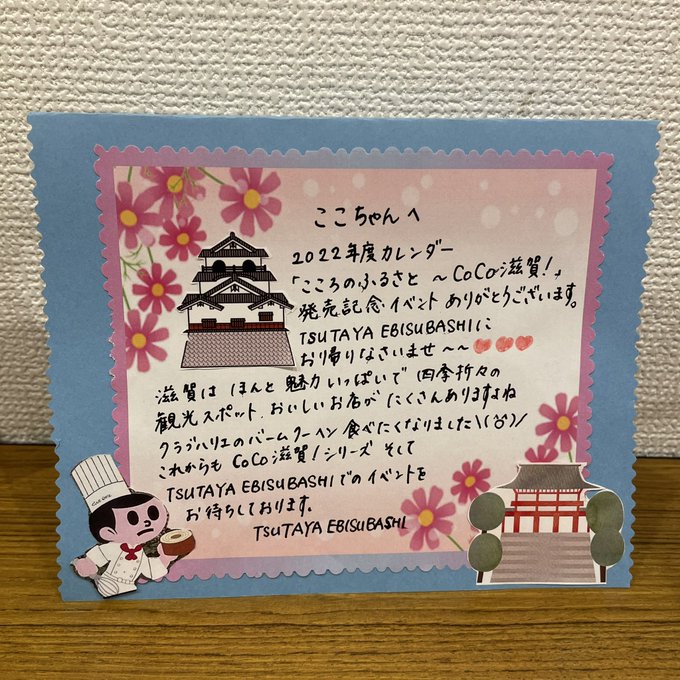 ここちゃんへ
2022年度カレンダー
「こころのふるさと ～CoCo滋賀！」
発売記念イベント ありがとうございます。
TSUTAYA EBISUBASHIに
おり帰りなさいませ～～
滋賀は ほんと 魅力いっぱいで 四季折々の
観光スポット、おいしいお店が たくさんありますよね
クラブハリエのバームクーヘン 食べたくなりました\(^o^)/
これからも CoCo滋賀！シリーズ そして
TSUTAYA EBISUBASHIでのイベントを
お待ちしております。
TSUTAYA EBISUBASHI